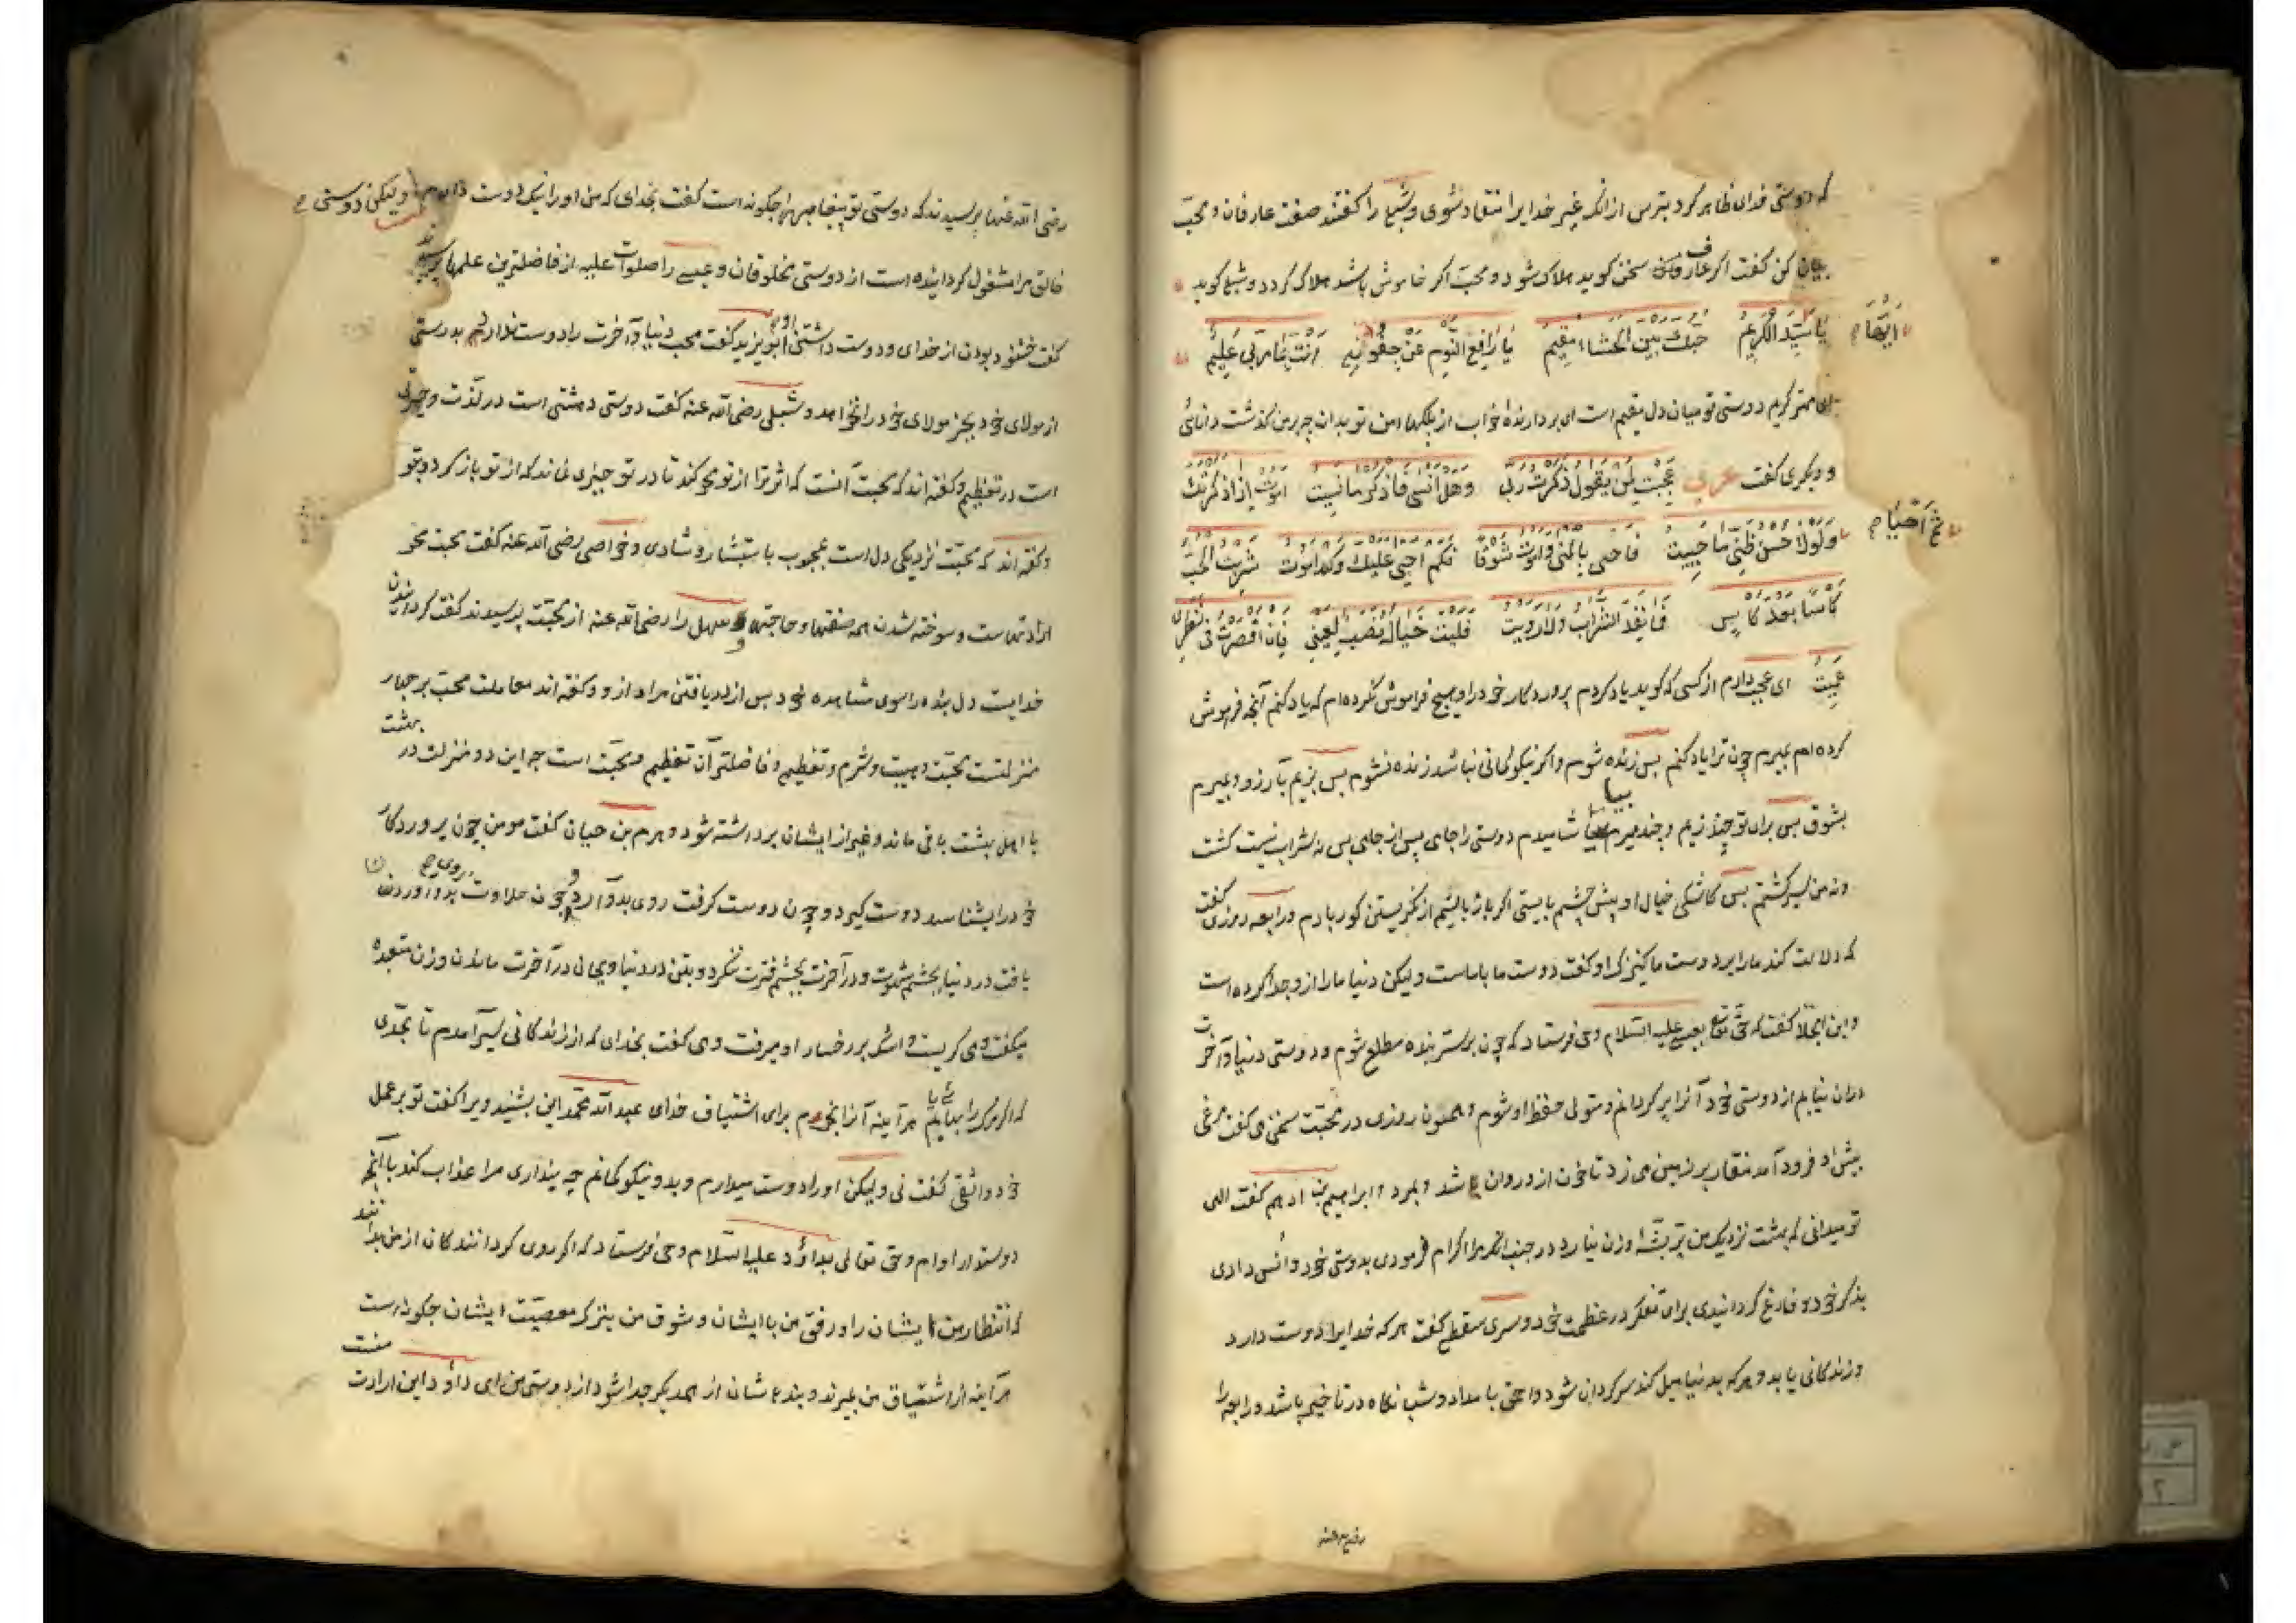 که دوستی خدای ظاهر کرد بترس از انکه غیر خدایرا منقاد شوی و شبلی را گفتند صفت عارفان و محبّ
بیان کن گفت اگر عارف سخن گوید هلاک شود و محبّ اگر خاموش باشد هلاک گردد و شبلی گوید
ایّها
یا سَیِّدَ الکَرِیمُ حُبّکَ بینَ الحَشَاء مقیمٌ یا رَافِعَ النَّوم عَن جُفُونی اَنتَ بمَا مَرَّ بی عَلیمٌ
ای مهتر کریم دوستی تو میان دل مقیم است ای بردارندهٔ خواب از پلکهای من تو بدان چه بر من گذشت دانائی
و دیگری گفت عربی عَجِبتُ لِمَن یَقُول ذَکَرتُ رَبّی وَهَل اَنسی فَاَذکُر مَا نَسِیتُ اَمُوتُ اِذَا ذَکَرتُکَ
ثمّ اَحیَا
وَلَولا حُسنُ ظَنّی مَا حَیِیتُ فَاَحیی بِالمُنی وَاَمُوتُ شَوقًا فَکَم اَحیی عَلَیکَ وَکَم اَمُوتُ شَرِبتُ الحُبَّ
کَأسًا بَعدَ کَأسٍ فَمَا نَفِدَ الشَّرَابُ وَلا رَوِیتُ فَلَیتَ خَیَالَهُ نُصبٌ لِعَینی فَاِن قَصَرتُ فی نَظَری
عَمِیتُ ای عجب دارم از کسی که گوید یاد کردم پروردگار خود را و هیچ فراموش نکرده ام که یاد کنم آنچه فراموش
کرده ام بمیرم چون ترا یاد کنم پس زنده شوم و اگر نیکو گمانی نباشد زنده نشوم پس بزیم بآرزو و بمیرم
بشوق پس برای تو چند زیم و چند میرم بیاشامیدم دوستی را جامی پس از جامی پس نه شراب نیست گشت
و نه من سیر گشتم پس کاشکی خیال او پیش چشم بایستی اگر باز مانم از نگریستن کور بادم و رابعه روزی گفت
که دلالت کند ما را بر دوست ما کنیزک او گفت دوست ما با ماست ولیکن دنیا ما را از و جدا کرده است
و ابن الجلا گفت که حق تعالی بعیسی علیه السلام وحی فرستاد که چون بر سرّ بنده مطلع شوم و دوستی دنیا و آخرت
دران نیابم از دوستی خود آنرا پر گردانم و متولی حفظ او شوم و سمنون روزی در محبّت سخن می گفت مرغی
پیش او فرود آمد منقار بر زمین می زد تا خون از و روان شد و بمرد و ابراهیم بن ادهم گفت الهی
تو میدانی که بهشت نزدیک من پر پشّه وزن نیارد در جنب انکه مرا اکرام فرمودی بدوستی خود و اُنس دادی
بذکر خود و فارغ گردانیدی برای تفکر در عظمت خود و سری سقطی گفت هر که خدایرا دوست دارد
و زندگانی یابد و هر که بدنیا میل کند سرگردان شود و احمق بامداد و شب نگاه در تاخیر باشد و رابعه را
رضی الله عنها پرسیدند که دوستی تو پیغامبر را چگونه است گفت بخدای که من او را نیک دوست دارم ولیکن دوستی
خالق مرا مشغول گردانیده است از دوستی مخلوقان و عیسی را صلوات علیه از فاضلترین علمها پرسیدند
گفت خشنود بودن از خدای و دوست داشتن او و ابو یزید گفت محب دنیا و آخرت را دوست ندارد بدرستی
از مولای خود بجز مولای خود را نخواهد و شبلی رضی الله عنه گفت دوستی دهشتی است در لذّت و حیرتی
است در تعظیم و گفته اند که محبّت آنست که اثر ترا از تو محو کند تا در تو چیزی نماند که از تو باز گردد بتو
و گفته اند که محبّت نزدیکی دل است بمحبوب باستبشار و شادی و خواصی رضی الله عنه گفت محبت محو
ارادتهاست و سوخته شدن همه صفتها و حاجتها و سهل را رضی الله عنه از محبّت پرسیدند گفت گردانیدن
خدایست دل بنده را سوی مشاهده خود پس از دریافتن مراد از و و گفته اند معاملت محبّ بر چهار
منزلتست محبّت و هیبت و شرم و تعظیم و فاضلتر آن تعظیم و محبّت است چه این دو منزلت در بهشت
با اهل بهشت باقی ماند و غیر از ایشان برداشته شود و هرم بن حیان گفت مومن چون پروردگار
خود را بشناسد دوست گیرد و چون دوست گرفت روی بدو آرد و چون حلاوت روی بدو آوردن
یافت در دنیا بچشم شهوت و در آخرت بچشم فترت ننگرد و بتن در دنیا و بجان در آخرت ماند و زن متعبده
میگفت و می گریست و اشک بر رخسار او میرفت و می گفت بخدای که از زندگانی سیر آمدم تا بحدّی
که اگر مرگ را بیابم هر آینه آنرا بخرم برای اشتیاق خدای عبد الله محمد این بشنید و یرا گفت تو بر عمل
خود واثقی گفت نی ولیکن او را دوست میدارم و بدو نیکو گمانم چه پنداری مرا عذاب کند با آنچه
دوستدار اوام و حق تعالی بداؤد علیه السّلام وحی فرستاد که اگر روی گردانندگان از من بدانند
که انتظار من ایشان را و رفق من با ایشان و شوق من بترک معصیّت ایشان چگونه است
هر آینه از اشتیاق من بمیرند و بندهاشان از همدیگر جدا شود از دوستی من ای داؤد این ارادت منست